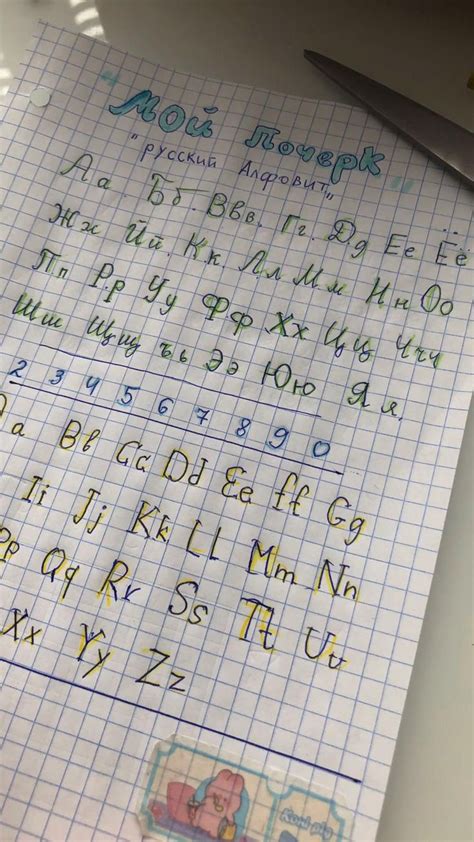 "Мой Почерк"
"русский Алфовит"
Аа. Бб. Ввв. Гг. Дд Ее Ёё
Жж Йй. Кк Лл Мм Нн Оо
Пп Рр Уу Фф Хх Цц Ччч
Шш Щщ ъь Ээ Юю Яя.
2 3 4 5 6 7 8 9 0
a Bb Cc Dd Ee ff Gg
Ii Jj Kk LL Mm Nn
Pp Qq Rr Ss Tt Uv
Xx Yy Zz